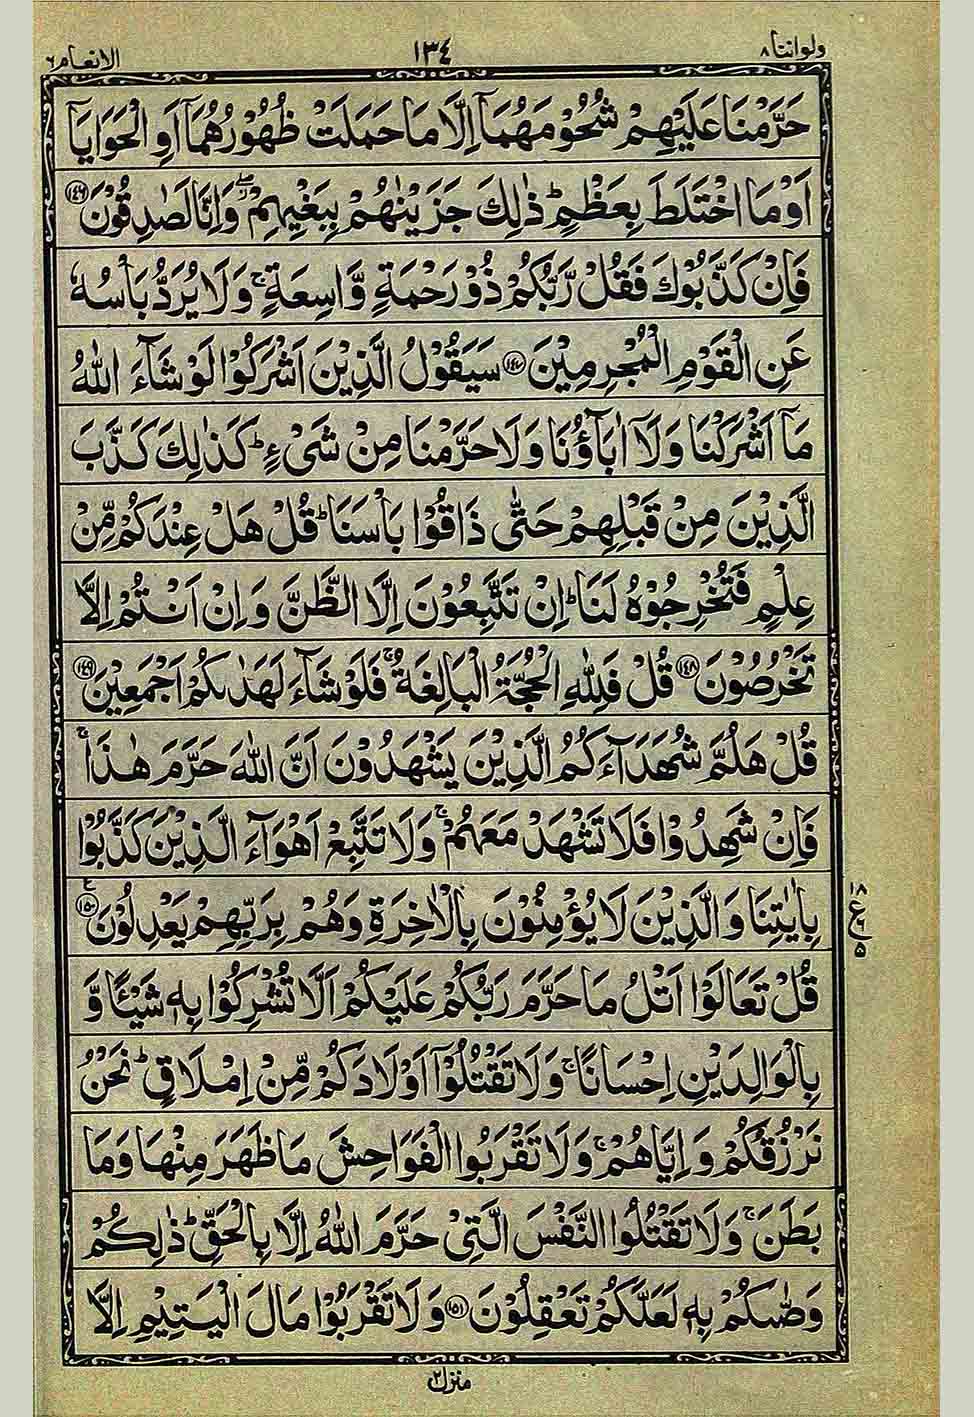 ولواننا ٨ ١٣٤ الانعام ٦
حَرَّمْنَا عَلَيْهِمْ شُحُوْمَهُمَآ اِلَّا مَا حَمَلَتْ ظُهُوْرُهُمَآ اَوِ الْحَوَايَآ
اَوْ مَا اخْتَلَطَ بِعَظْمٍ ؕ ذٰلِكَ جَزَيْنٰهُمْ بِبَغْيِهِمْ ۖ وَاِنَّا لَصٰدِقُوْنَ ﴿۱۴۶﴾
فَاِنْ كَذَّبُوْكَ فَقُلْ رَّبُّكُمْ ذُوْ رَحْمَةٍ وَّاسِعَةٍ ۚ وَلَا يُرَدُّ بَاْسُهٗ
عَنِ الْقَوْمِ الْمُجْرِمِيْنَ ﴿۱۴۷﴾ سَيَقُوْلُ الَّذِيْنَ اَشْرَكُوْا لَوْ شَآءَ اللّٰهُ
مَآ اَشْرَكْنَا وَلَآ اٰبَآؤُنَا وَلَا حَرَّمْنَا مِنْ شَیْءٍ ؕ كَذٰلِكَ كَذَّبَ
الَّذِيْنَ مِنْ قَبْلِهِمْ حَتّٰى ذَاقُوْا بَاْسَنَا ؕ قُلْ هَلْ عِنْدَكُمْ مِّنْ
عِلْمٍ فَتُخْرِجُوْهُ لَنَا ؕ اِنْ تَتَّبِعُوْنَ اِلَّا الظَّنَّ وَاِنْ اَنْتُمْ اِلَّا
تَخْرُصُوْنَ ﴿۱۴۸﴾ قُلْ فَلِلّٰهِ الْحُجَّةُ الْبَالِغَةُ ۚ فَلَوْ شَآءَ لَهَدٰىكُمْ اَجْمَعِيْنَ ﴿۱۴۹﴾
قُلْ هَلُمَّ شُهَدَآءَكُمُ الَّذِيْنَ يَشْهَدُوْنَ اَنَّ اللّٰهَ حَرَّمَ هٰذَا ۚ
فَاِنْ شَهِدُوْا فَلَا تَشْهَدْ مَعَهُمْ ۚ وَلَا تَتَّبِعْ اَهْوَآءَ الَّذِيْنَ كَذَّبُوْا
بِاٰيٰتِنَا وَالَّذِيْنَ لَا يُؤْمِنُوْنَ بِالْاٰخِرَةِ وَهُمْ بِرَبِّهِمْ يَعْدِلُوْنَ ﴿۱۵۰﴾ ع
١٨
ع ٦
٥
قُلْ تَعَالَوْا اَتْلُ مَا حَرَّمَ رَبُّكُمْ عَلَيْكُمْ اَلَّا تُشْرِكُوْا بِهٖ شَيْئًا وَّ
بِالْوَالِدَيْنِ اِحْسَانًا ۚ وَلَا تَقْتُلُوْٓا اَوْلَادَكُمْ مِّنْ اِمْلَاقٍ ؕ نَحْنُ
نَرْزُقُكُمْ وَاِيَّاهُمْ ۚ وَلَا تَقْرَبُوا الْفَوَاحِشَ مَا ظَهَرَ مِنْهَا وَمَا
بَطَنَ ۚ وَلَا تَقْتُلُوا النَّفْسَ الَّتِیْ حَرَّمَ اللّٰهُ اِلَّا بِالْحَقِّ ؕ ذٰلِكُمْ
وَصّٰىكُمْ بِهٖ لَعَلَّكُمْ تَعْقِلُوْنَ ﴿۱۵۱﴾ وَلَا تَقْرَبُوْا مَالَ الْيَتِيْمِ اِلَّا
منزل ٢